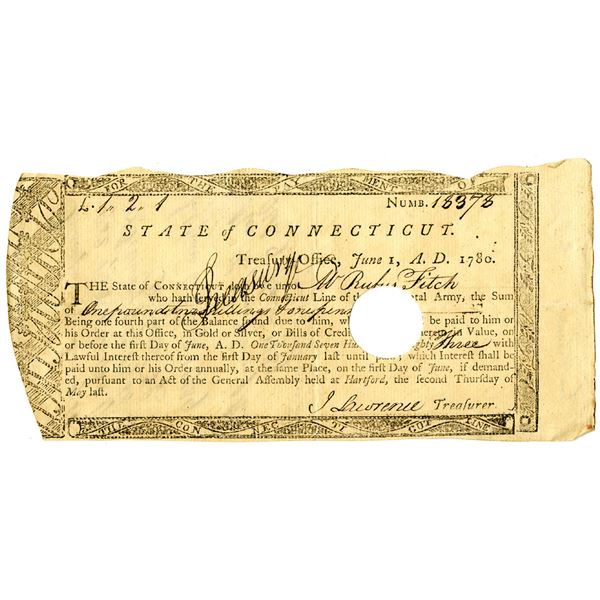 FOR THE PAY MENT O
L. 1. 2. 1 NUMB. 18378
STATE of CONNECTICUT.
Treasury-Office, June 1, A. D. 1780.
THE State of CONNECTICUT doth owe unto Mr Rufus Fitch
who hath served in the Connecticut Line of the ntal Army, the Sum
of One pound two shillings & one penny
Being one fourth part of the Balance found due to him, wh be paid to him or
his Order at this Office, in Gold or Silver, or Bills of Credit thereto in Value, on
or before the first Day of June, A. D. One Thousand Seven Hu ghty Three with
Lawful Interest thereof from the first Day of January last until paid; which Interest shall be
paid unto him or his Order annually, at the same Place, on the first Day of June, if demand-
ed, pursuant to an Act of the General Assembly held at Hartford, the second Thursday of
May last.
J Lawrence Treasurer
THE CON NEC TI CUT LINE